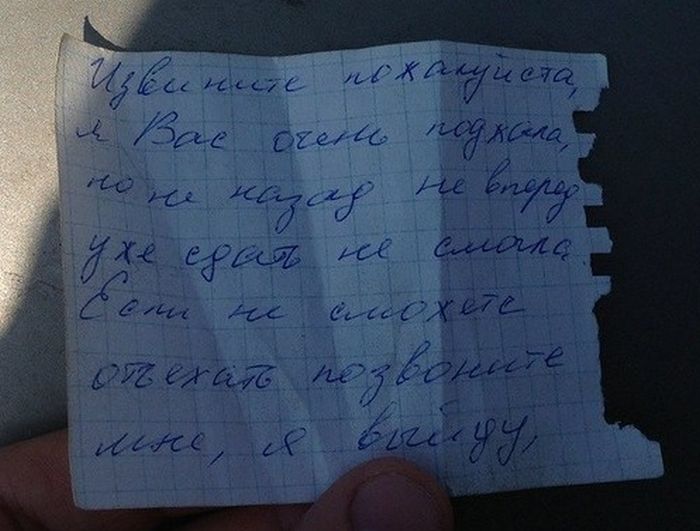 Извините пожалуйста,
я Вас очень поджала,
но не назад не вперед
уже сдать не смогла.
Если не сможете
отъехать позвоните
мне, я выйду,